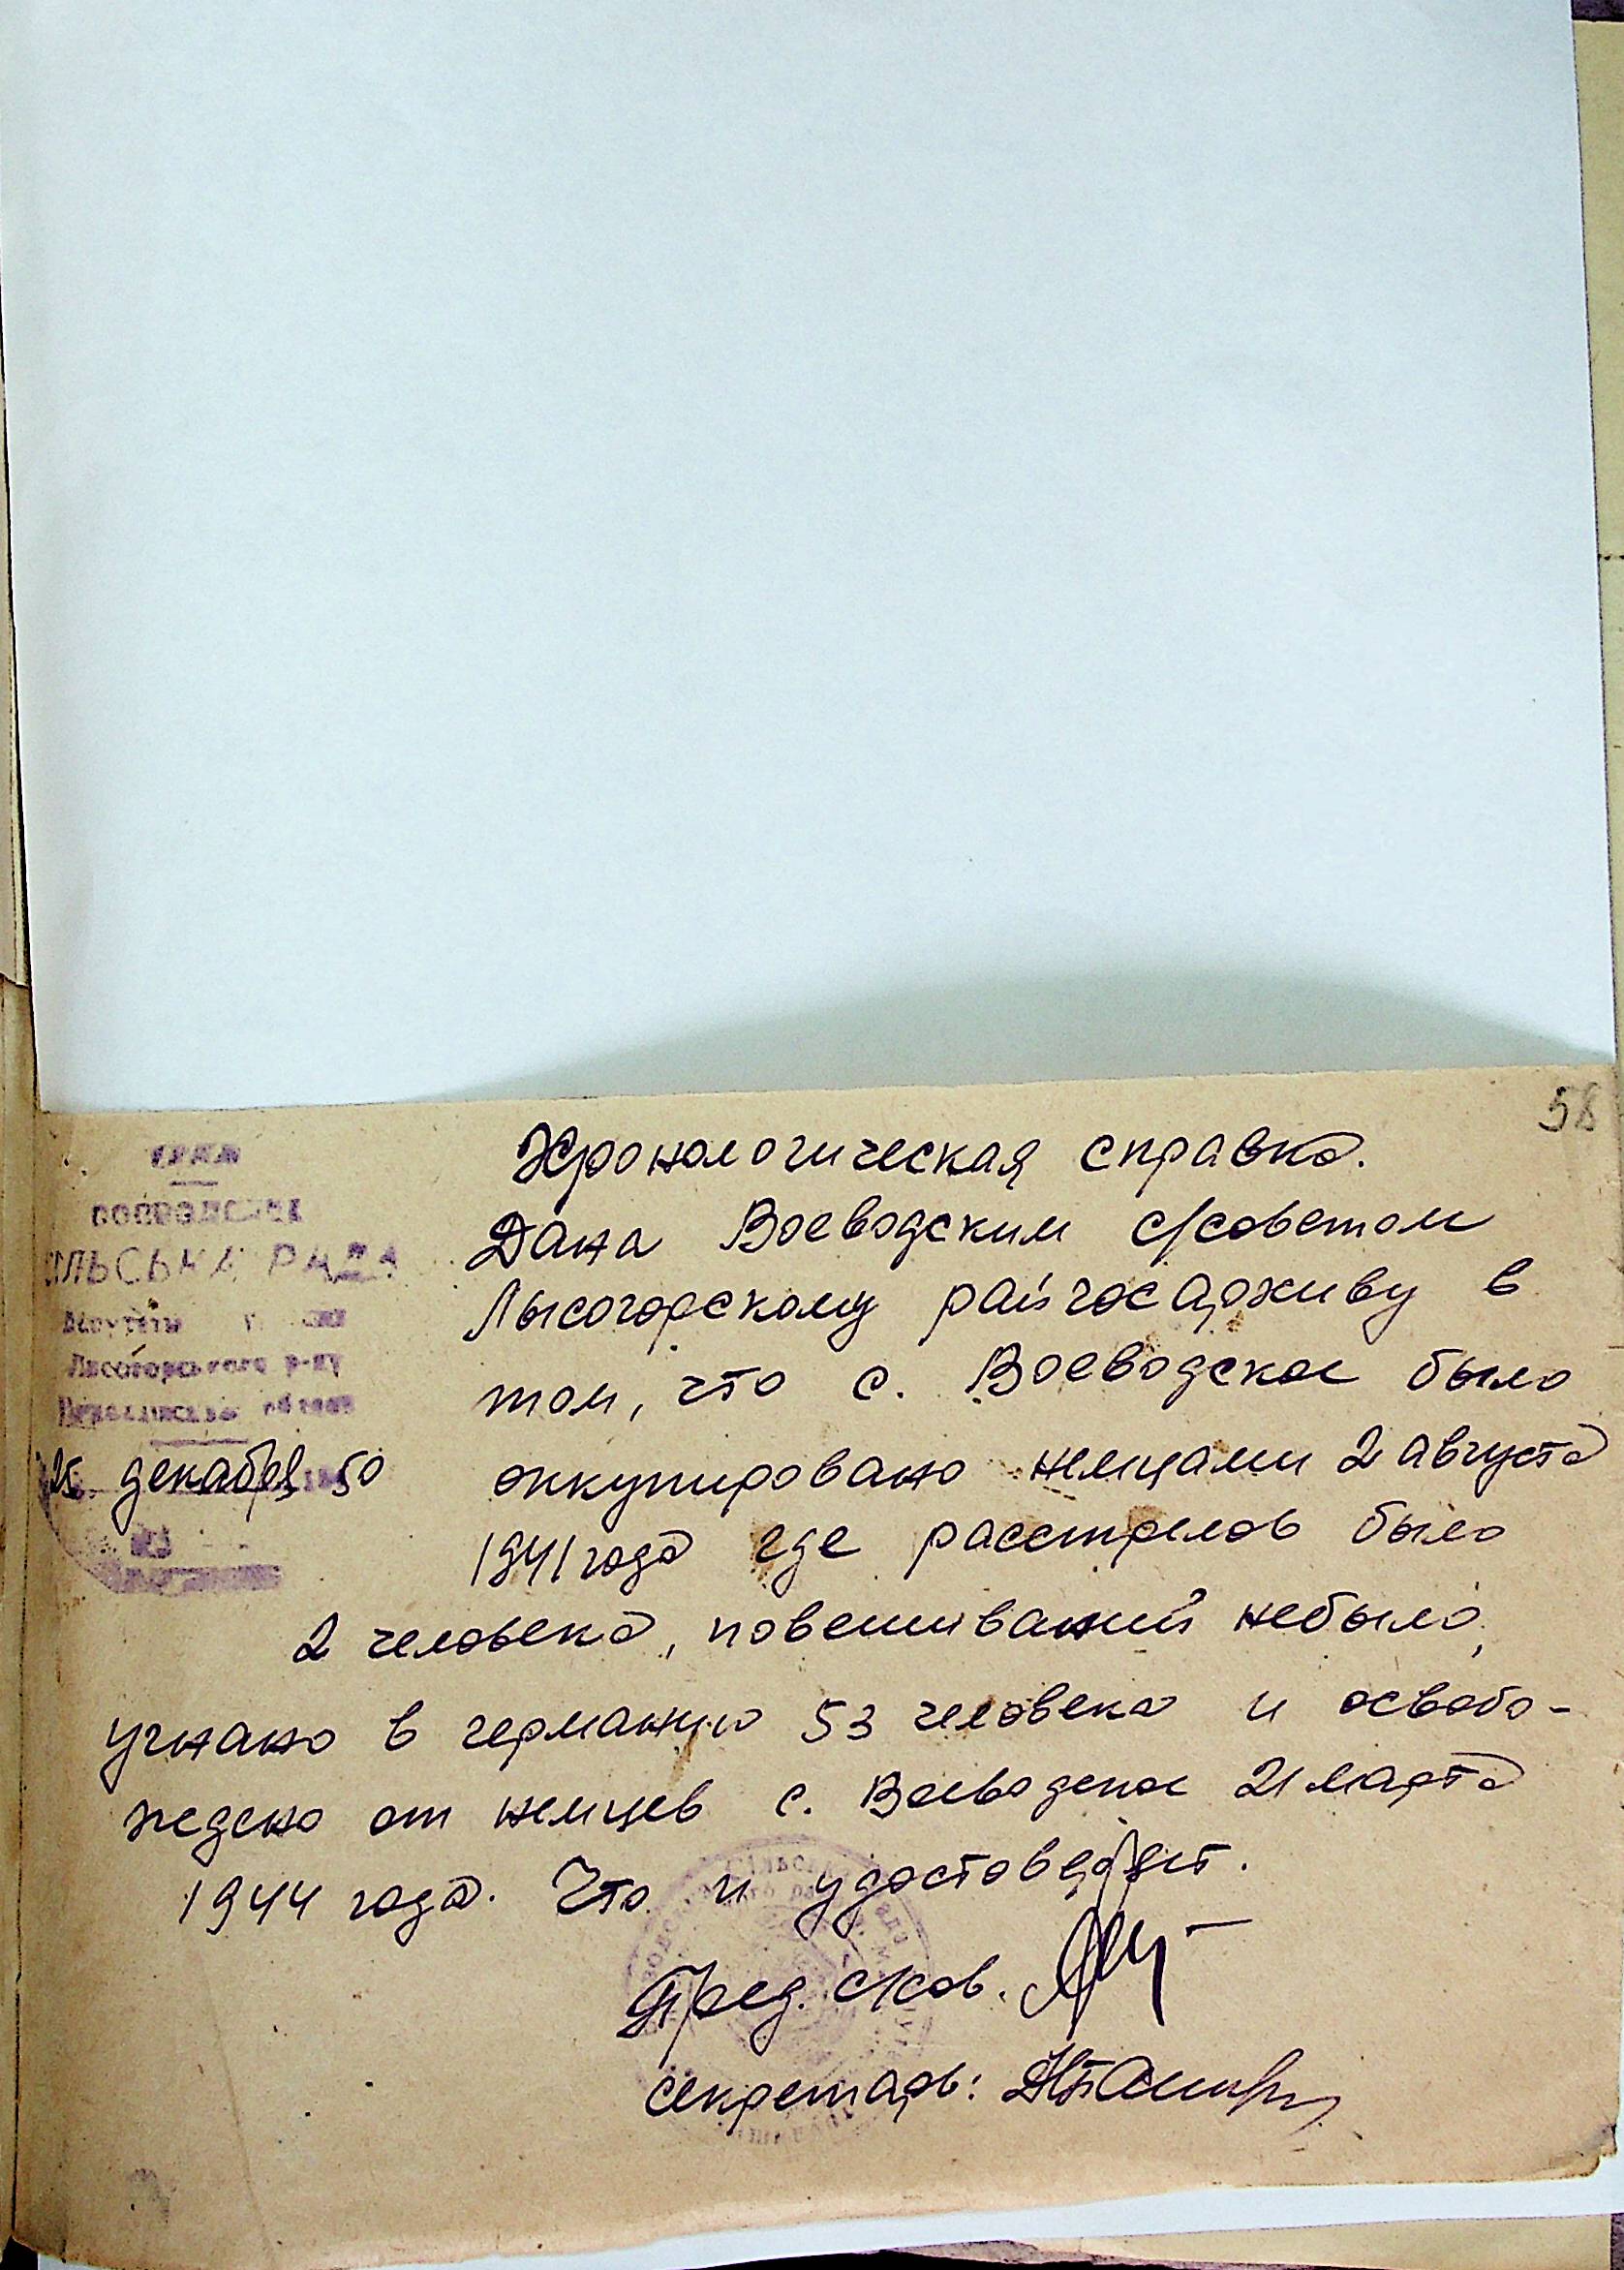 58
Хронологическая справка.
Дана Воеводским с/советом
Лысогорскому райгосархиву в
том, что с. Воеводское было
оккупировано немцами 2 августа
1941 года где расстрелов было
2 человека, повешиваний небыло,
угнано в германию 53 человека и освобо-
ждено от немцев с. Воеводское 21 марта
1944 года. Что и удостоверяет.
Пред. с/сов.
секретарь:
СІЛЬСЬКА РАДА
Лисогорського р-ну
25 декабря 50